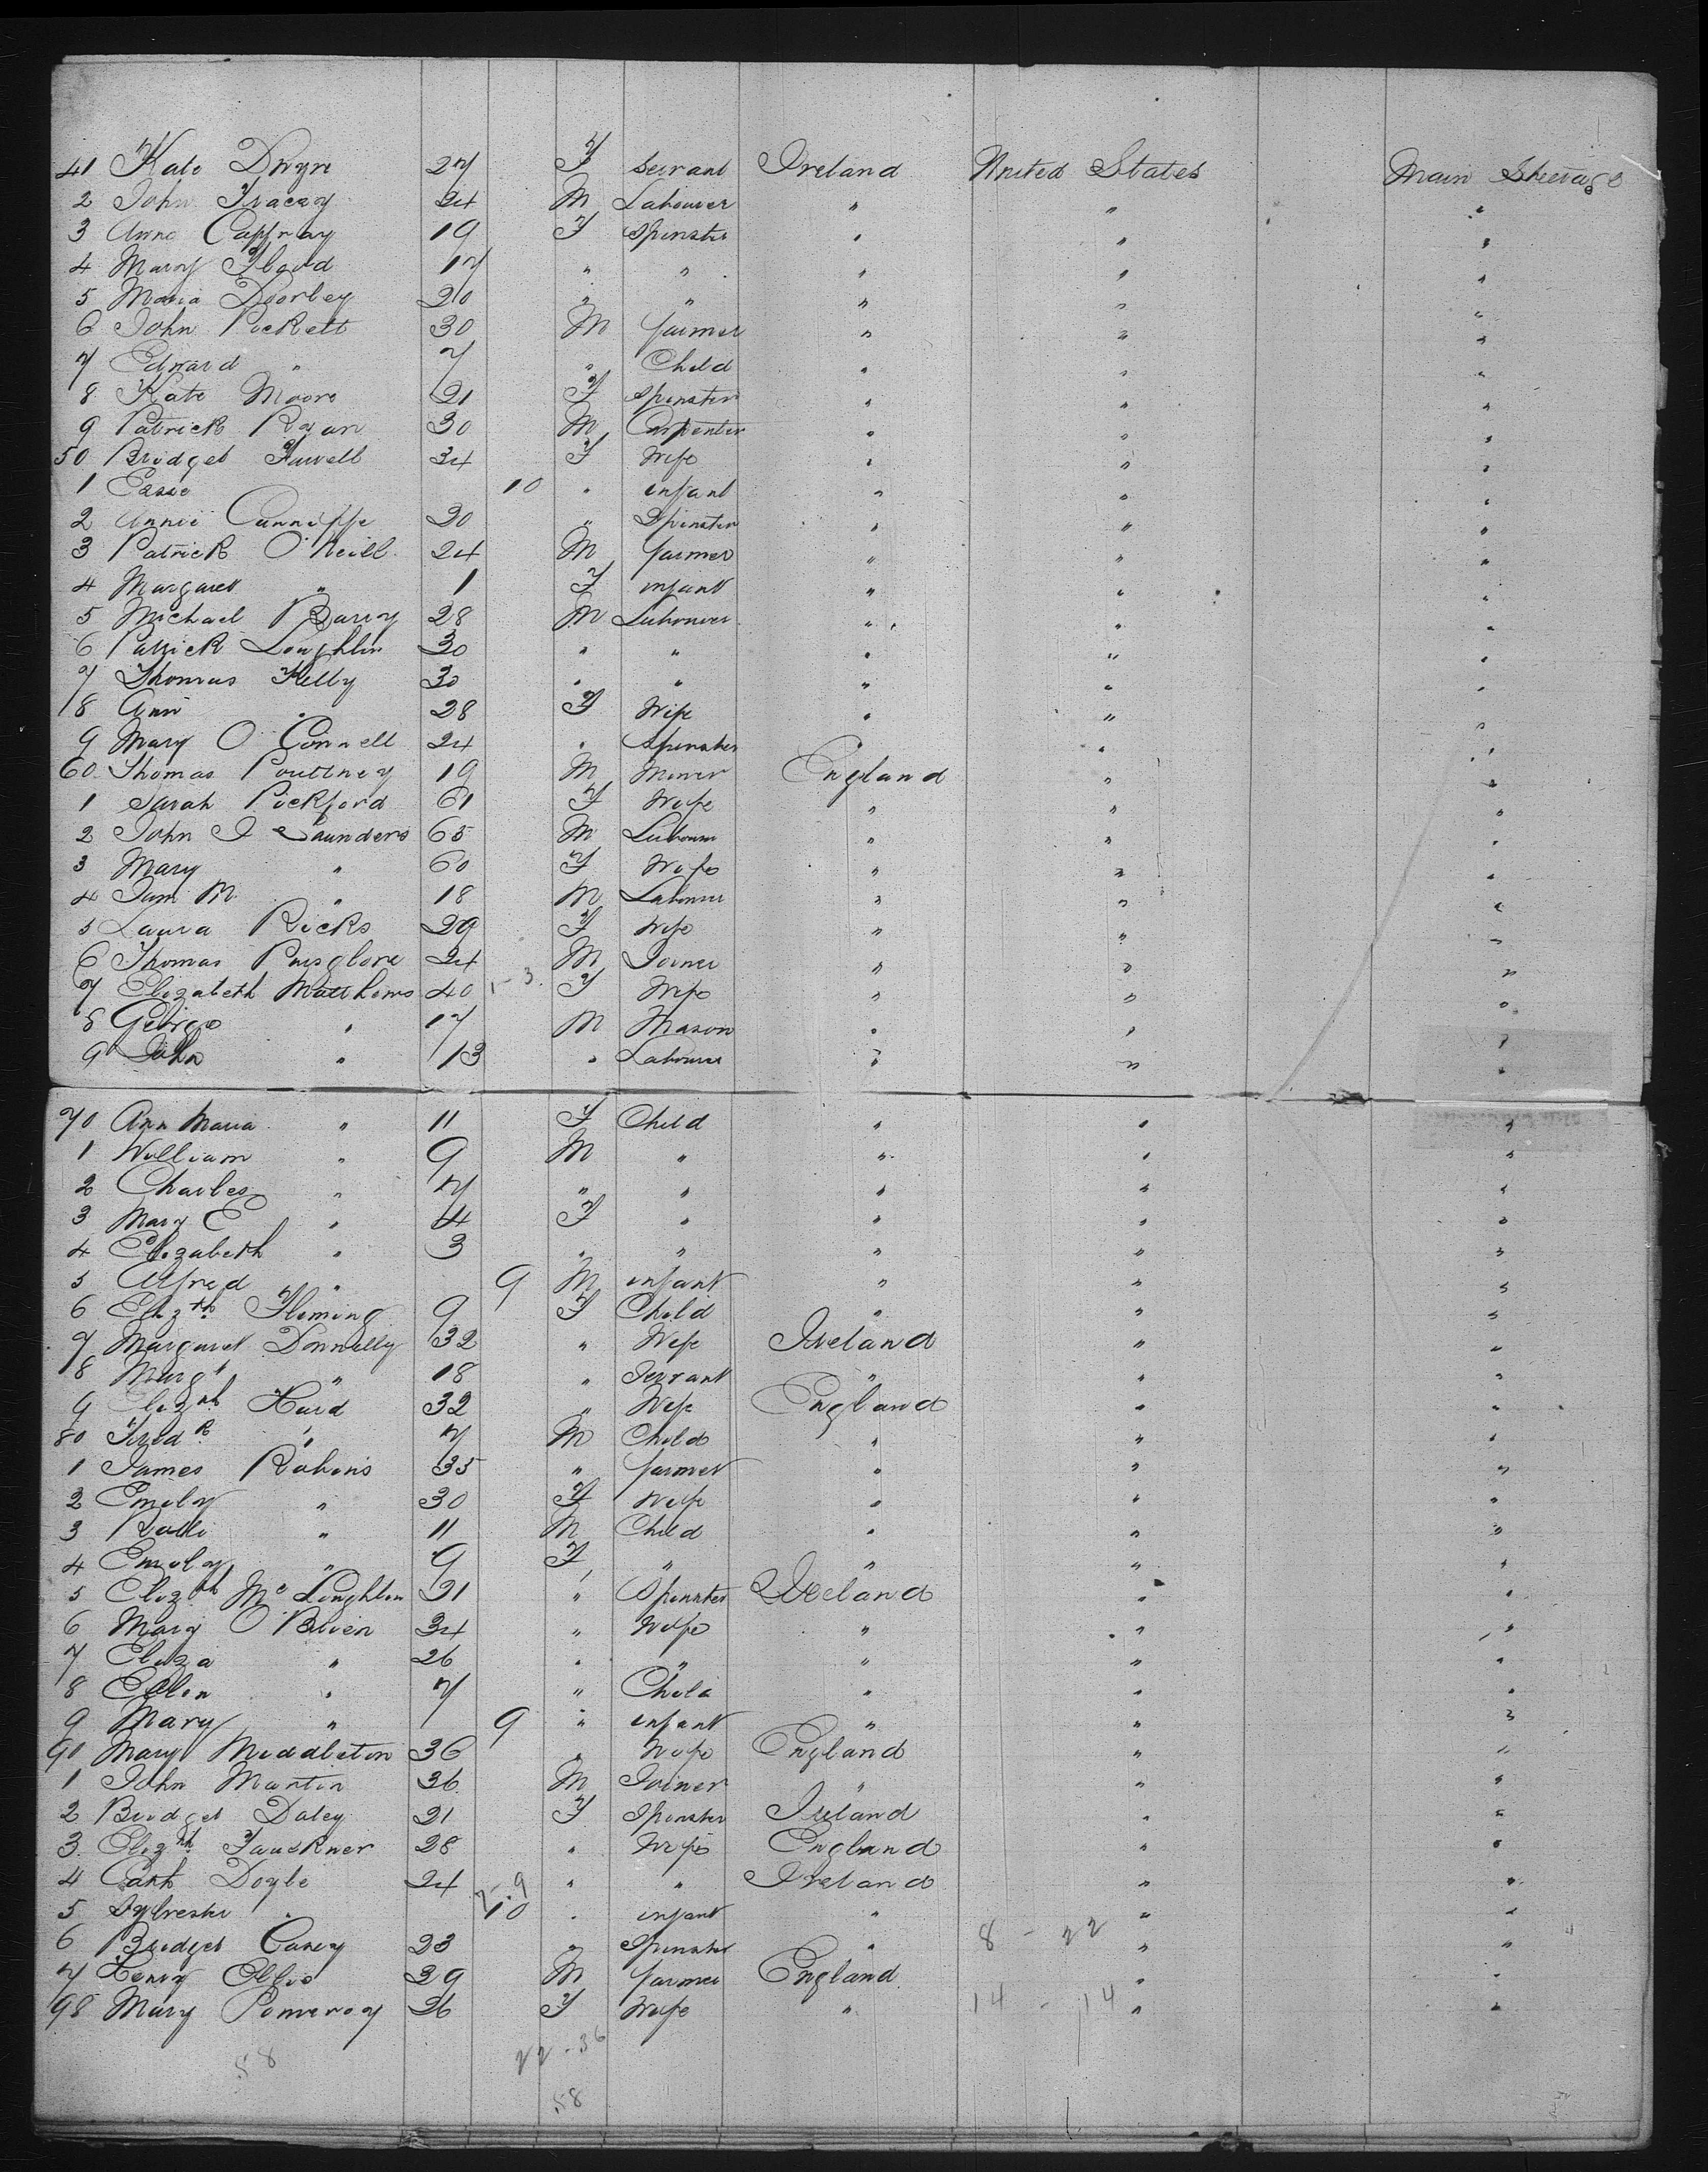 41 Kate Dwyn 27 F Servant Ireland United States Main Steerage
2 John Tracey 24 M Labourer " " "
3 Anne Caffray 19 F Spinster " " "
4 Mary Flood 17 " " " " "
5 Maria Doorley 20 " " " " "
6 John Pickett 30 M farmer " " "
7 Edward " 7 " Child " " "
8 Kate Moore 21 F Spinster " " "
9 Patrick Ryan 30 M Carpenter " " "
50 Bridget Farrell 34 F Wife " " "
1 Essie 10 " infant " " "
2 Annie Cunniffe 20 " Spinster " " "
3 Patrick O'Neill 24 M farmer " " "
4 Margaret " 1 F infant " " "
5 Michael Barry 28 M Labourer " " "
6 Patrick Loughlin 30 " " " " "
7 Thomas Kelly 30 " " " " "
8 Ann " 28 F Wife " " "
9 Mary O Connell 24 " Spinster " " "
60 Thomas Poultney 19 M Miner England " "
1 Sarah Pickford 61 F Wife " " "
2 John J Saunders 65 M Labourer " " "
3 Mary " 60 F Wife " " "
4 Sam M " 18 M Labourer " " "
5 Laura Ricks 29 F Wife " " "
6 Thomas Pursglove 24 M Joiner " " "
7 Elizabeth Matthews 40 1-3 F Wife " " "
8 George " 17 M Mason " " "
9 John " 13 " Labourer " " "
70 Ann Maria " 11 F Child " " "
1 William " 9 M " " " "
2 Charles " 7 " " " " "
3 Mary E " 4 F " " " "
4 Elizabeth " 3 " " " " "
5 Alfred " 9 M infant " " "
6 Elizth Fleming 9 F Child " " "
7 Margaret Donnelly 32 " Wife Ireland " "
8 Margt " 18 " Servant " " "
9 Elizth Hurd 32 " Wife England " "
80 Fredk " 7 M Child " " "
1 James Robins 35 " farmer " " "
2 Emily " 30 F Wife " " "
3 " 11 M Child " " "
4 Emily " 9 F " " " "
5 Elizth Mc Loughlin 21 " Spinster Ireland " "
6 Mary O'Brien 34 " Wife " " "
7 Eliza " 26 " " " " "
8 Ellen " 7 " Child " " "
9 Mary " 9 " infant " " "
90 Mary Middleton 36 " Wife England " "
1 John Martin 36 M Joiner " " "
2 Bridget Daley 21 F Spinster Ireland " "
3 Elizth Faulkner 28 " Wife England " "
4 Cath Doyle 24 7-9 " " Ireland " "
5 Sylvester " 10 " infant " " "
6 Bridget Carey 23 " Spinster " 8 - 22 " "
7 Henry Ellis 39 M farmer England " "
98 Mary Pomeroy 26 F Wife " 14 - 14 " "
58 22-36
58